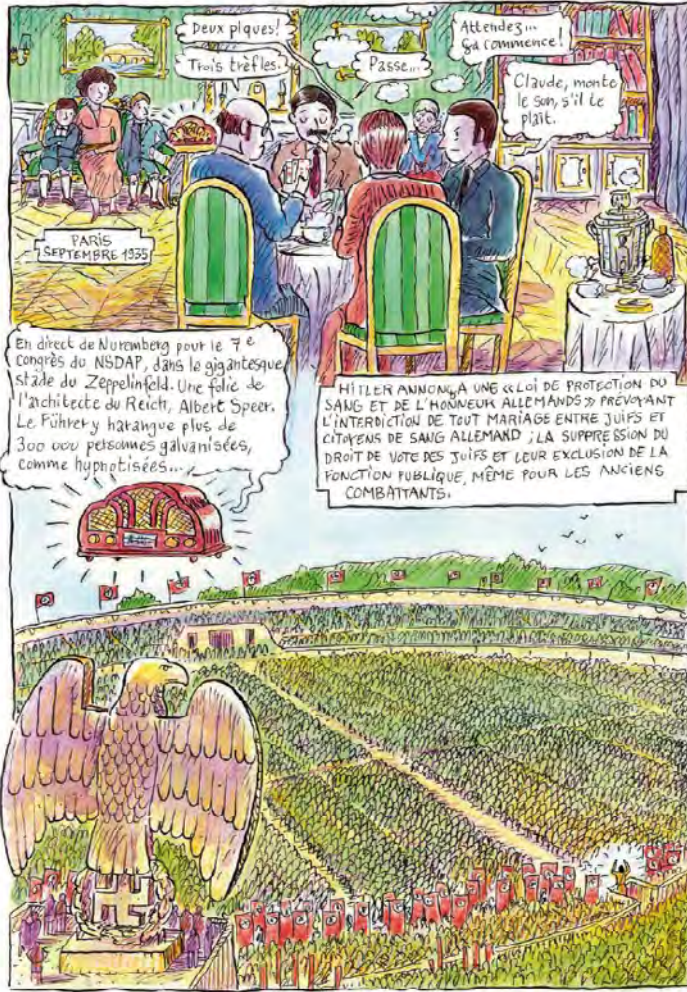 Deux piques!
Trois trèfles.
Passe...
Attendez...
ça commence!
Claude, monte
le son, s'il te
plaît.
PARIS
SEPTEMBRE 1935
En direct de Nuremberg pour le 7e
congrès du NSDAP, dans le gigantesque
stade du Zeppelinfeld. Une folie de
l'architecte du Reich, Albert Speer.
Le Führer y harangue plus de
300 000 personnes galvanisées,
comme hypnotisées...
HITLER ANNONÇA UNE «LOI DE PROTECTION DU
SANG ET DE L'HONNEUR ALLEMANDS» PRÉVOYANT
L'INTERDICTION DE TOUT MARIAGE ENTRE JUIFS ET
CITOYENS DE SANG ALLEMAND ; LA SUPPRESSION DU
DROIT DE VOTE DES JUIFS ET LEUR EXCLUSION DE LA
FONCTION PUBLIQUE, MÊME POUR LES ANCIENS
COMBATTANTS.